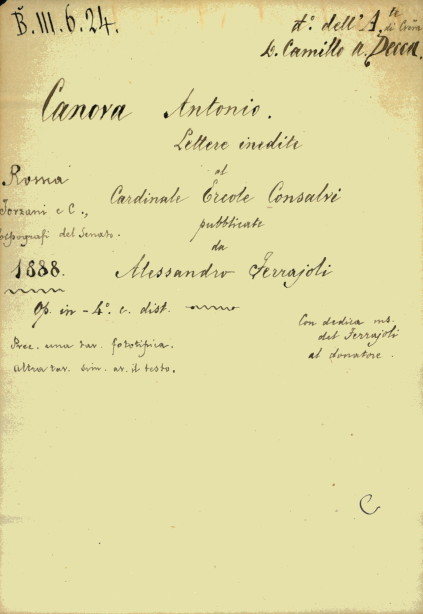 B.III.6.24.
d.º dell' A.te
D. Camillo
Canova Antonio.
Lettere inedite
al
Roma
Cardinale Ercole Consalvi
Forzani e C.,
pubblicate
Tipografi del Senato.
da
1888.
Alessandro Ferrajoli
Op. in-4º. c. dist.
Con dedica ms.
del Ferrajoli
al donatore.
Prec. una tav. fototifica.
Altra tav. sim. av. il testo.
C